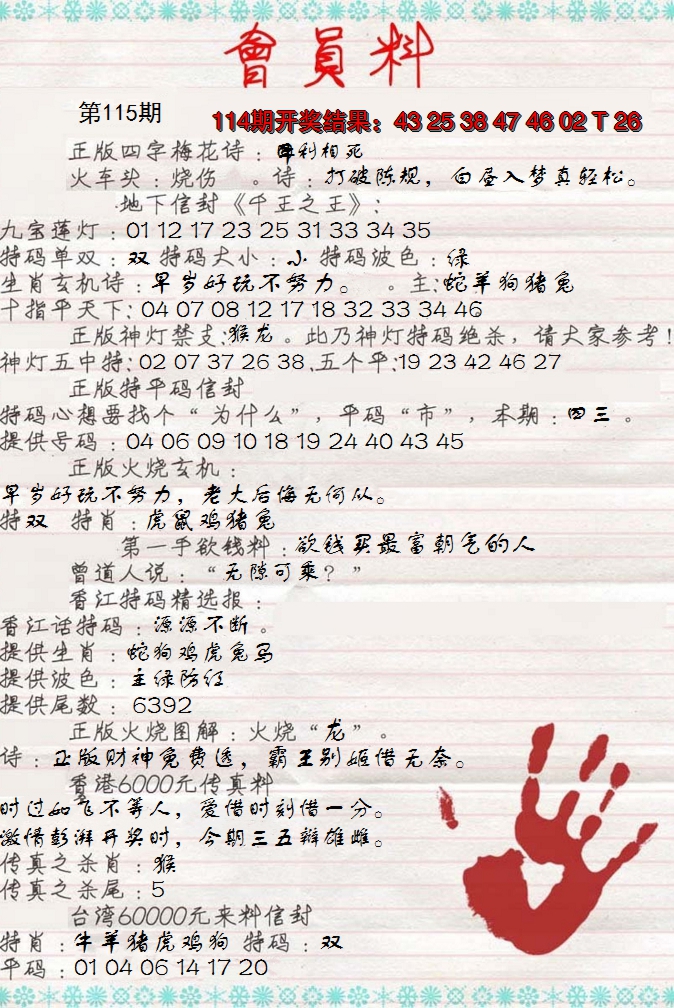 會員料
第115期
114期开奖结果：43 25 38 47 46 02 T 26
正版四字梅花诗：犀利相死
火车头：烧伤 。诗：打破陈规，白昼入梦真轻松。
地下信封《千王之王》：
九宝莲灯：01 12 17 23 25 31 33 34 35
特码单双：双 特码大小：小 特码波色：绿
生肖玄机诗：早岁好玩不努力。 。主：蛇羊狗猪兔
十指平天下：04 07 08 12 17 18 32 33 34 46
正版神灯禁支：猴龙。此乃神灯特码绝杀，请大家参考！
神灯五中特：02 07 37 26 38.五个平：19 23 42 46 27
正版特平码信封
特码心想要找个“为什么”，平码“市”，本期：四三。
提供号码：04 06 09 10 18 19 24 40 43 45
正版火烧玄机：
早岁好玩不努力，老大后悔无何从。
特双 特肖：虎鼠鸡猪兔
第一手欲钱料：欲钱买最富朝气的人
曾道人说：“无隙可乘？”
香江特码精选报：
香江话特码：源源不断。
提供生肖：蛇狗鸡虎兔马
提供波色：主绿防红
提供尾数：6392
正版火烧图解：火烧“龙”。
诗：正版财神免费透，霸王别姬借无奈。
香港6000元传真料
时过如飞不等人，爱惜时刻惜一分。
激情彭湃开奖时，今期三五辩雄雌。
传真之杀肖：猴
传真之杀尾：5
台湾60000元来料信封
特肖：牛羊猪虎鸡狗 特码：双
平码：01 04 06 14 17 20